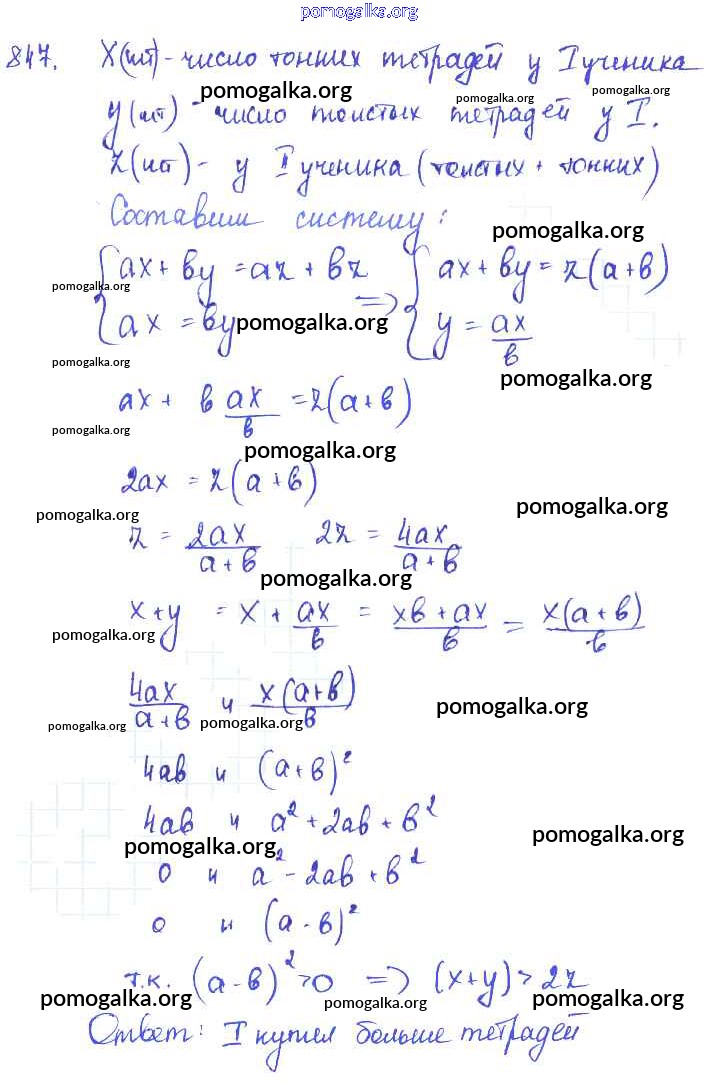 pomogalka.org
847. X(шт) - число тонких тетрадей у I ученика
pomogalka.org pomogalka.org pomogalka.org
y(шт) - число толстых тетрадей у I.
z(шт) - у II ученика (толстых + тонких)
Составим систему:
pomogalka.org
{ax + вy = az + вz { ax + вy = z(a+в)
pomogalka.org
{ax = вy => { y = ax/в
pomogalka.org
pomogalka.org
pomogalka.org
ax + в ax/в = z(a+в)
pomogalka.org
pomogalka.org
2ax = z(a+в)
pomogalka.org pomogalka.org
z = 2ax/a+в 2z = 4ax/a+в
pomogalka.org
x+y = x + ax/в = xв+ax/в = x(a+в)/в
pomogalka.org
4ax/a+в и x(a+в)/в
pomogalka.org pomogalka.org pomogalka.org
4aв и (a+в)²
4aв и a²+2aв+в²
pomogalka.org pomogalka.org
0 и a²-2aв+в²
0 и (a-в)²
т.к. (a-в)²>0 => (x+y)>2z
pomogalka.org pomogalka.org pomogalka.org
Ответ: I купил больше тетрадей